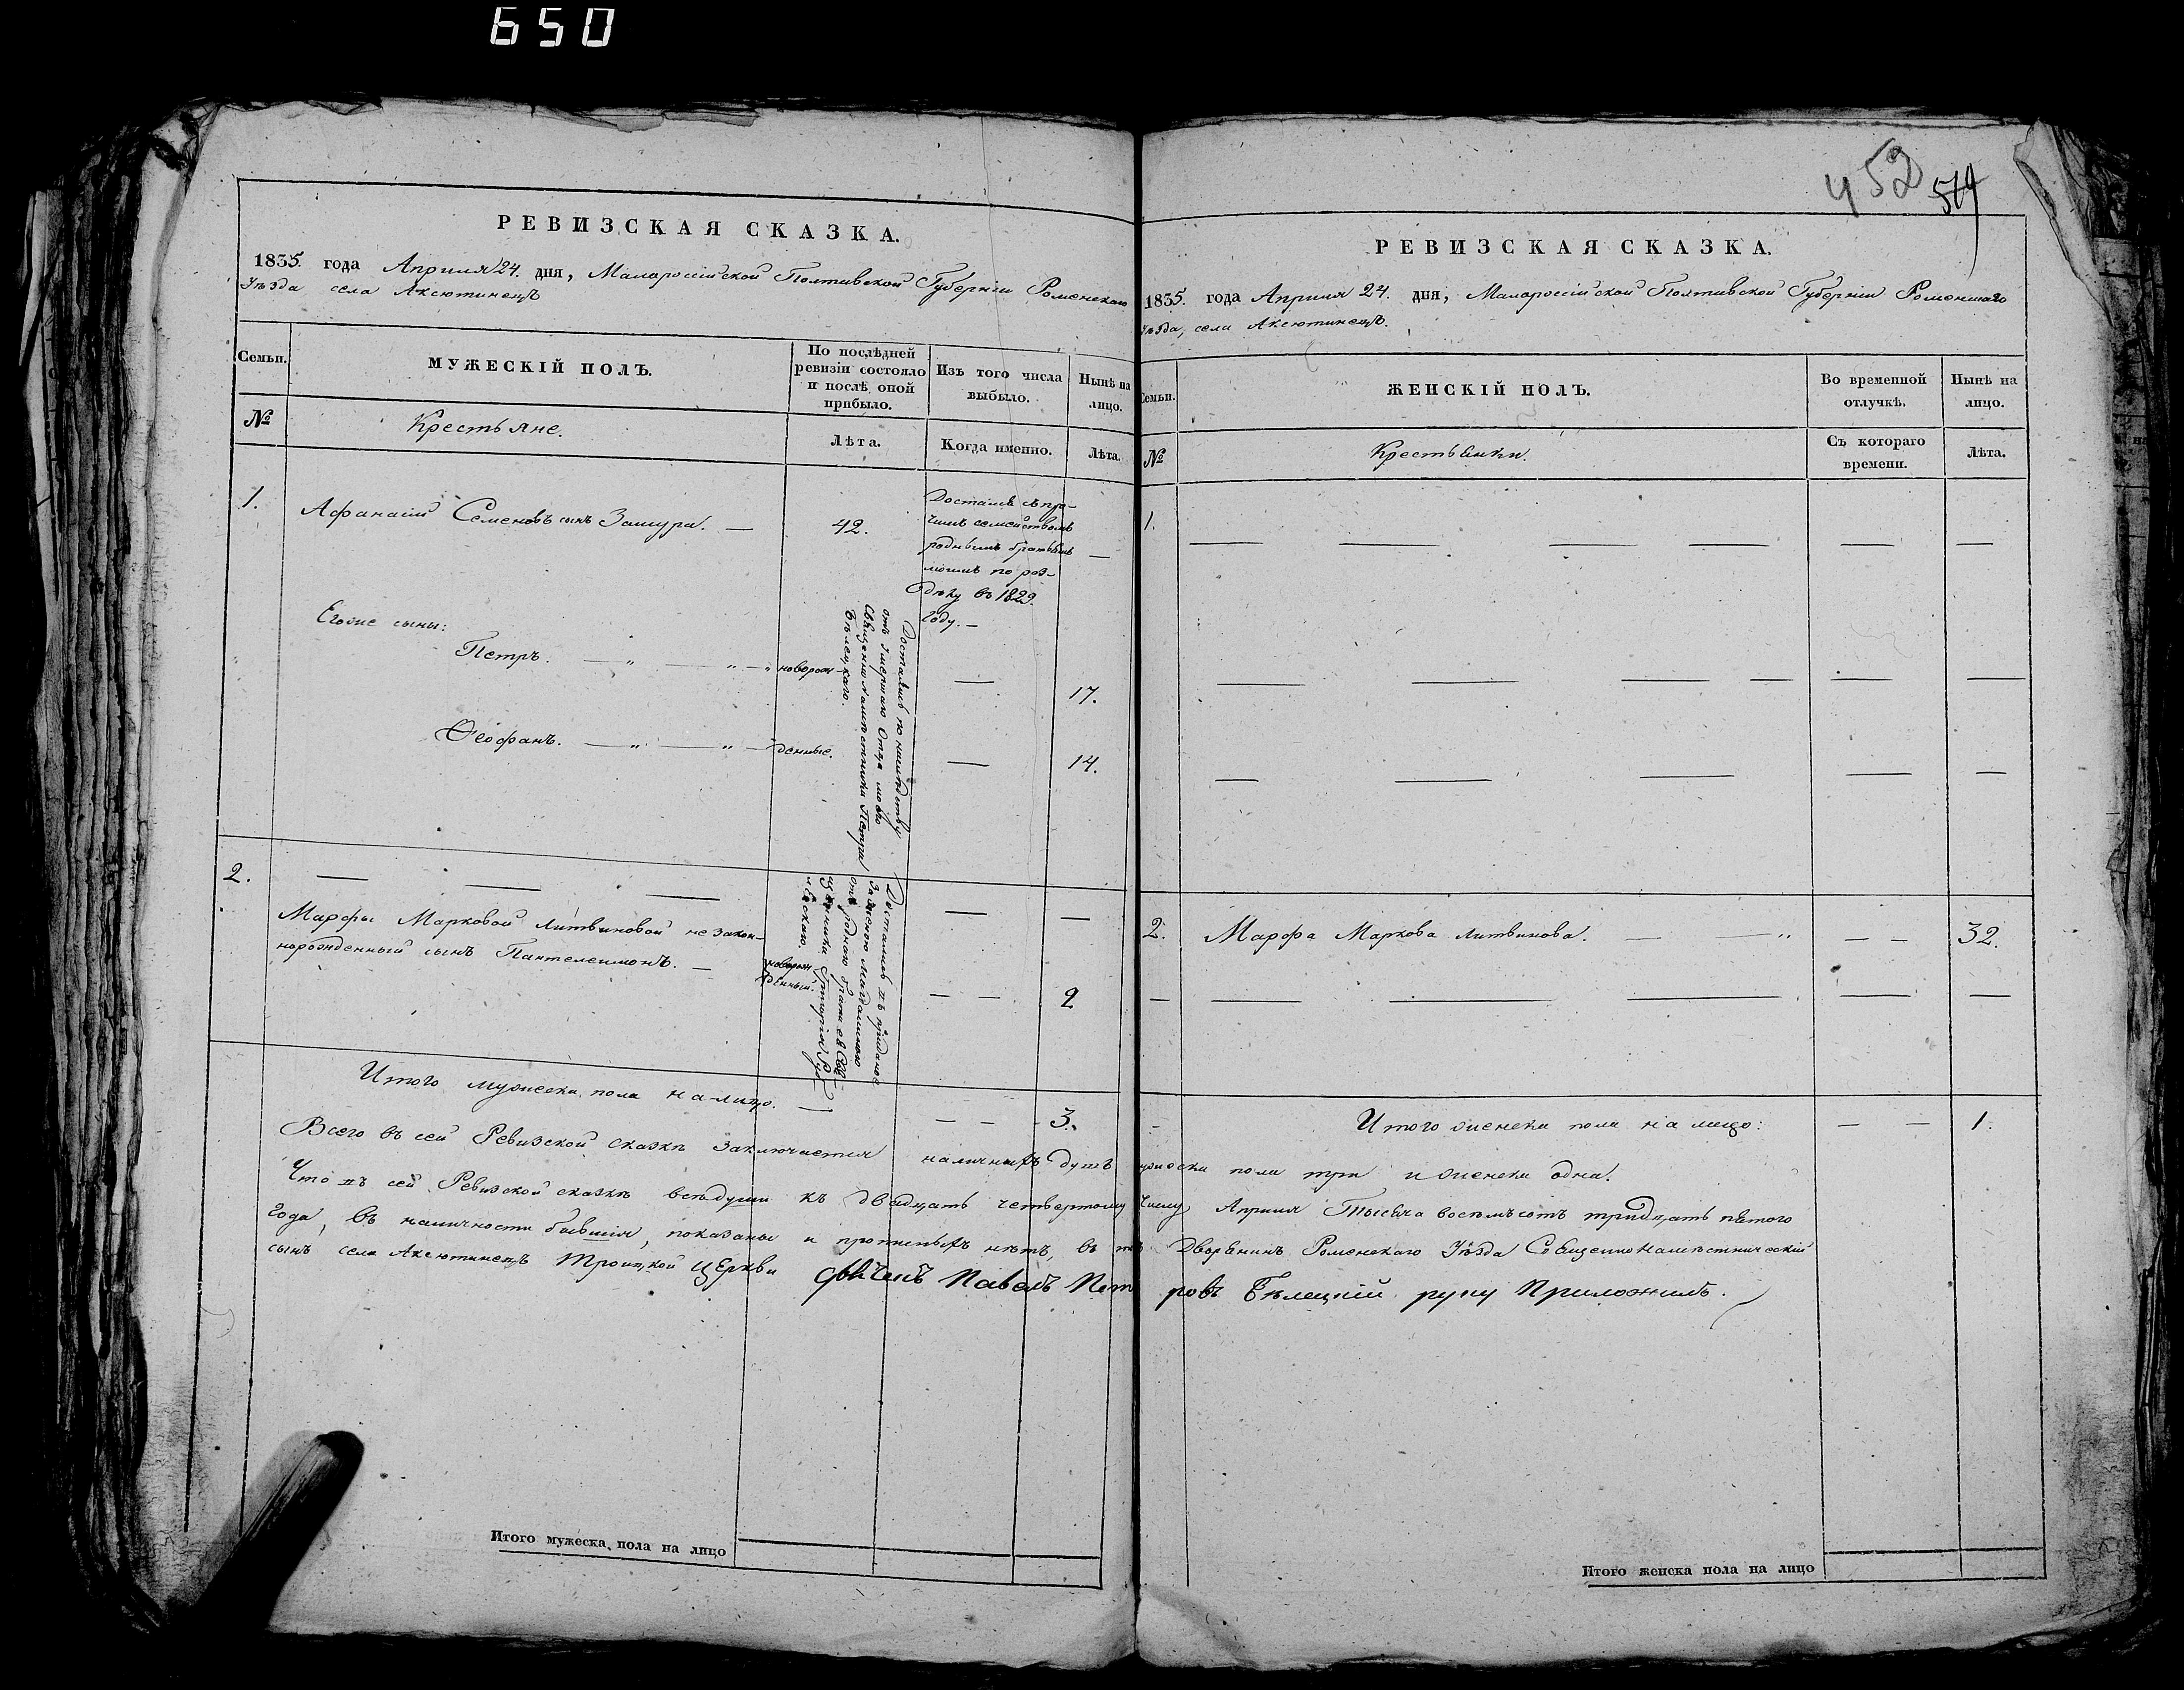 650
452 519
РЕВИЗСКАЯ СКАЗКА.
1835. года Априля 24. дня, Малороссійской Полтавской Губерніи Роменскаго
Уѣзда села Аксютинецъ
Семьи.
МУЖЕСКІЙ ПОЛЪ.
По послѣдней
ревизіи состояло
и послѣ оной
прибыло.
Изъ того числа
выбыло.
Нынѣ на
лицо.
№
Крестьяне.
Лѣта.
Когда именно.
Лѣта.
1. Афанасій Семеновъ сынъ — 42.
Достался съ про-
чимъ семействомъ
роднымъ братьямъ
моимъ по роз-
дѣлу въ 1829.
Году. —
Его же сыны:
Петръ. — " — " — " новорож — 17.
Ѳеофанъ. — " — " — денные. — 14.
Достались по наслѣдству
отъ умершаго Отца моего
Священнонамѣстника Петра
Бѣлецкаго.
2. — — — — —
Марфы Марковой Литвиновой незакон-
норожденный сынъ Пантелеимонъ. — новорож
денный. — — 2
Достались въ приданое
за женою
отъ роднаго брата ея
Григорія
Итого мужеска пола на-лицо. — — — 3.
РЕВИЗСКАЯ СКАЗКА.
1835. года Априля 24. дня, Малороссійской Полтавской Губерніи Роменскаго
Уѣзда, села Аксютинецъ.
Семьи.
ЖЕНСКІЙ ПОЛЪ.
Во временной
отлучкѣ.
Нынѣ на
лицо.
№
Крестьянки.
Съ котораго
времени.
Лѣта.
1. — — — — — —
2. Марфа Маркова Литвинова. — — " — — 32.
Итого женска пола на лицо: — — 1.
Всего въ сей Ревизской сказкѣ заключается наличныхъ душъ мужеска пола три и женска одна.
Что въ сей Ревизской сказкѣ всѣ души къ двадцать четвертому числу Априля Тысяча восемьсотъ тридцать пятого
Года, въ наличности бывшія, показаны и прописныхъ нѣтъ, въ томъ Дворянинъ Роменскаго Уѣзда Священнонамѣстническій
сынъ села Аксютинецъ Троицкой Церкви Павелъ Петровъ Бѣлецкій руку Приложилъ.
Итого мужеска пола на лицо
Итого женска пола на лицо